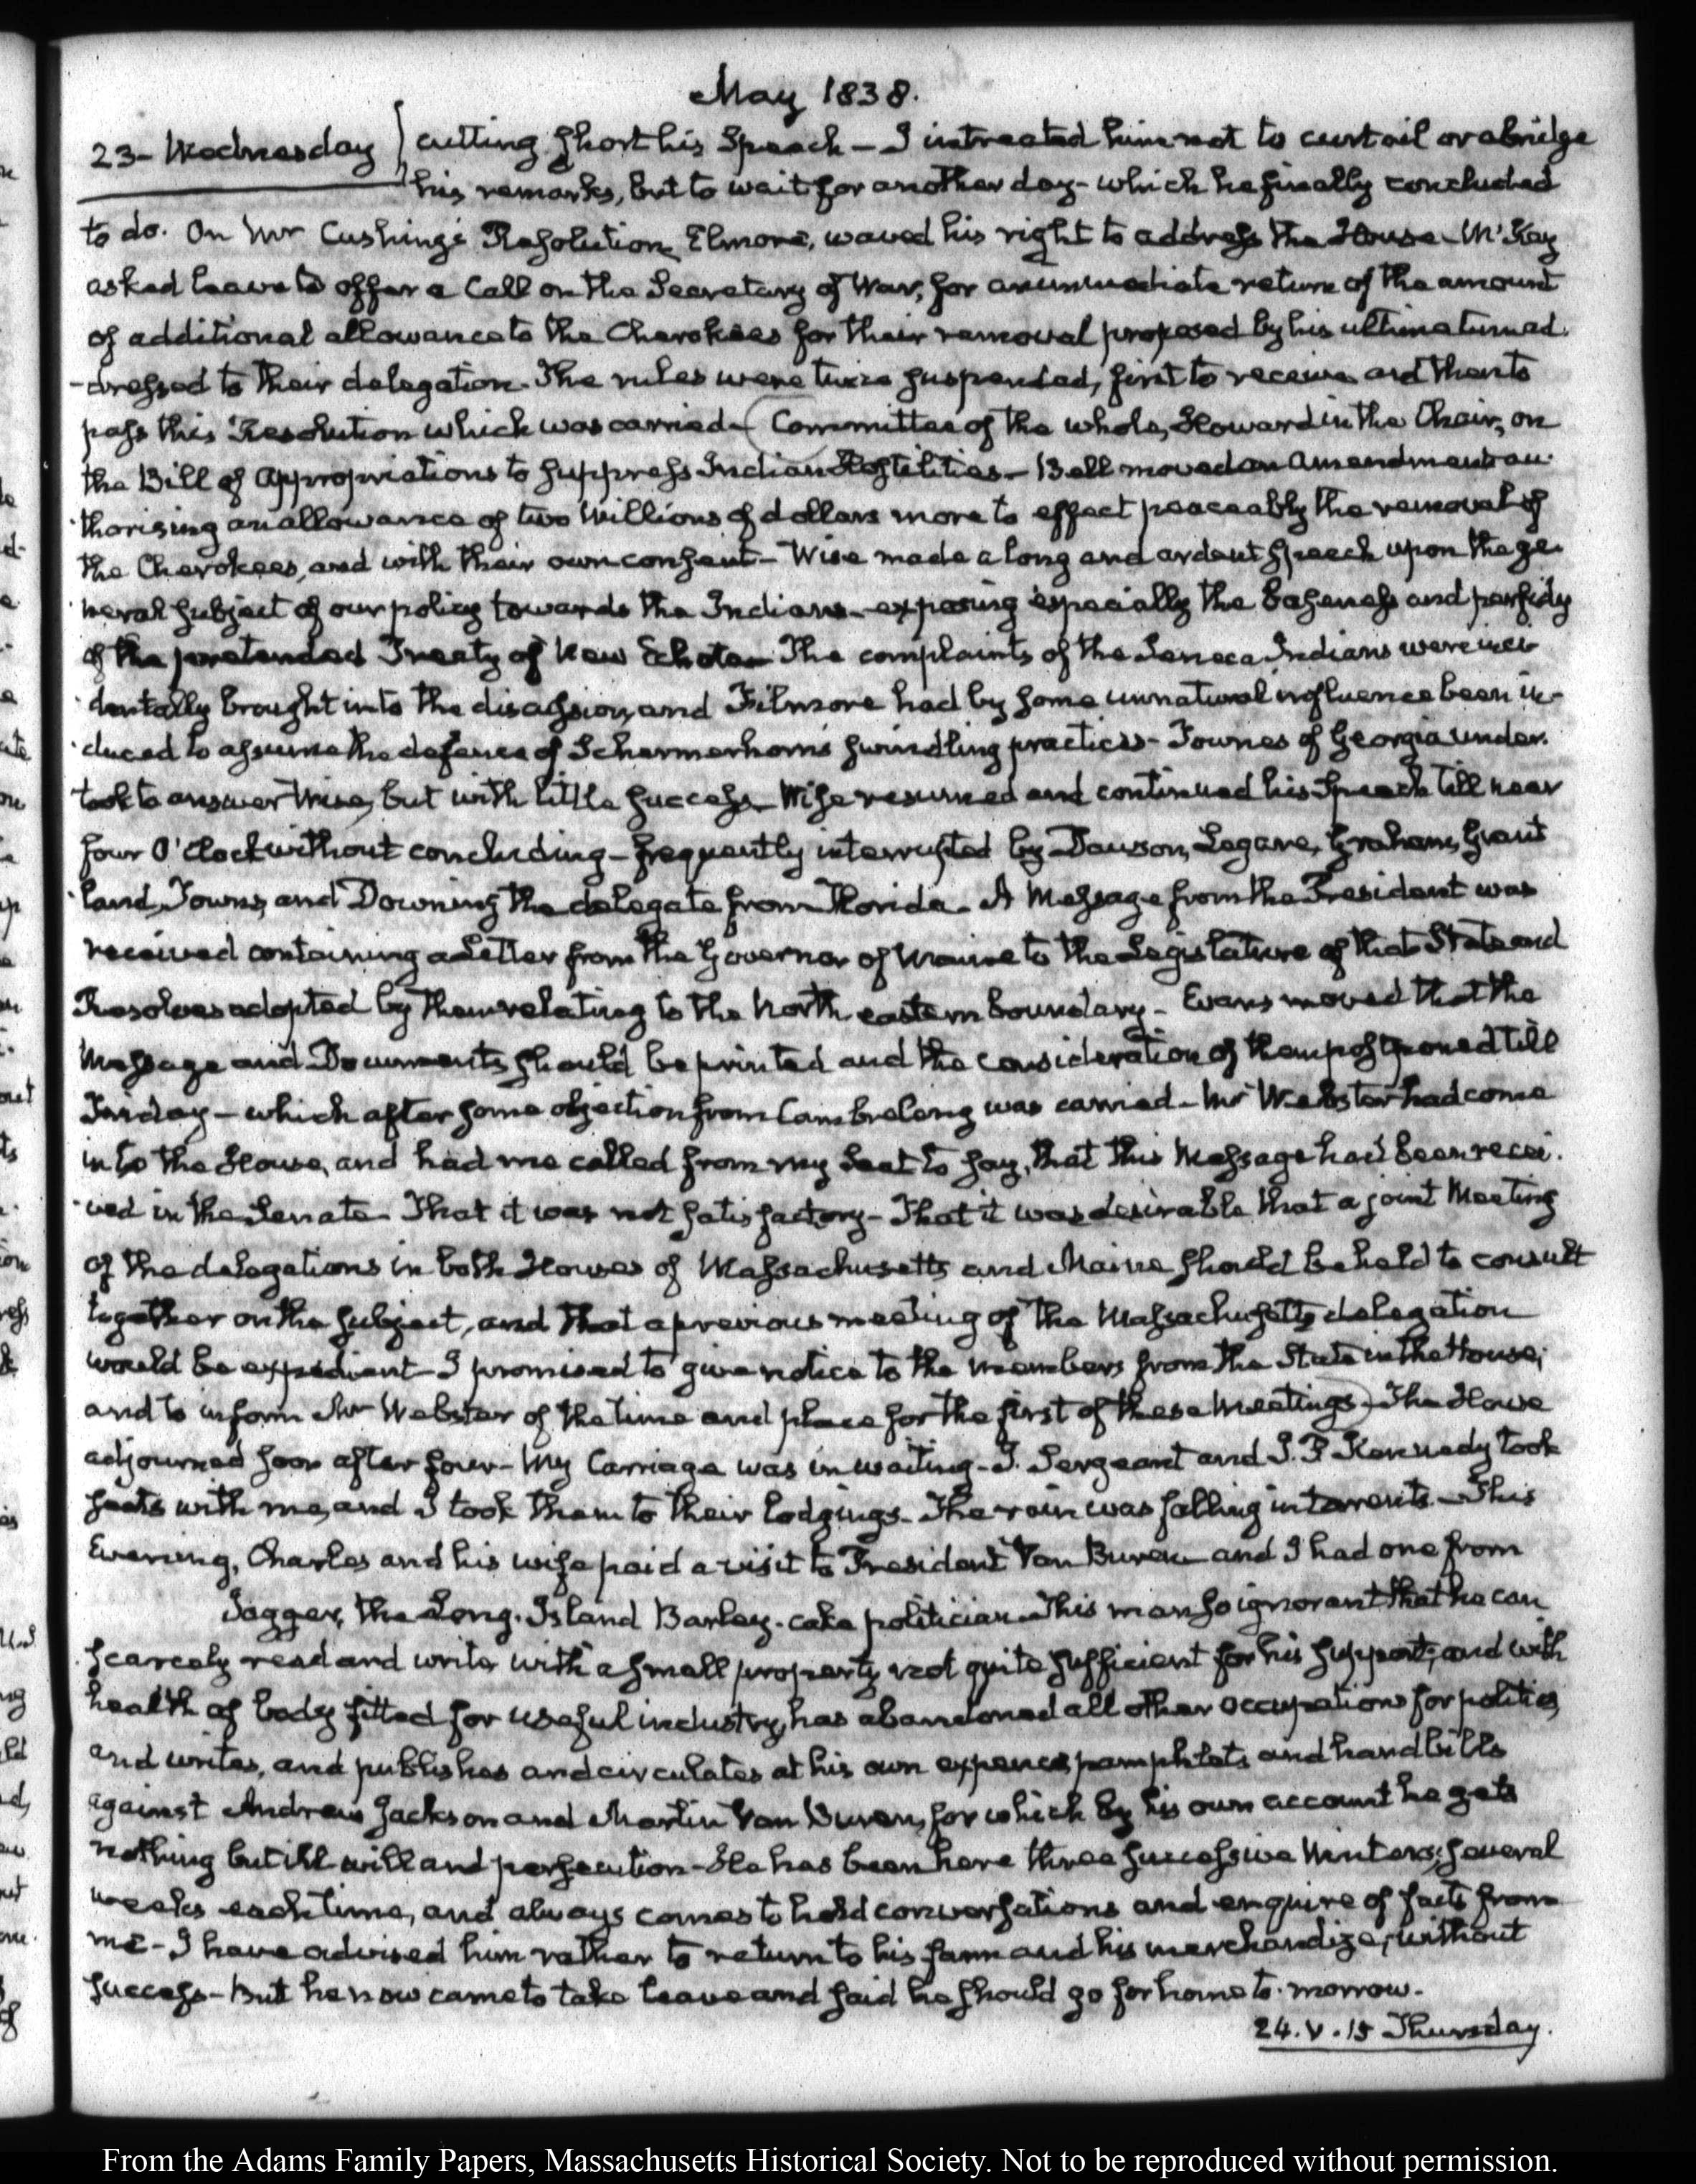 May 1838.
23- Wednesday } cutting short his Speech – I intreated him not to curtail or abridge
his remarks, but to wait for another day – which he finally concluded
to do. On Mr Cushing's Resolution, Elmore, waved his right to address the House – McKay
asked leave to offer a Call on the Secretary of War, for an immediate return of the amount
of additional allowance to the Cherokees for their removal proposed by his ultimatum ad-
-dressed to their delegation. The rules were twice suspended, first to receive and then to
pass this Resolution which was carried – (Committee of the whole, Howard in the Chair, on
the Bill of Appropriations to suppress Indian Hostilities – Bell moved an Amendment au-
-thorising an allowance of two Millions of dollars more to effect peaceably the removal of
the Cherokees, and with their own consent – Wise made a long and ardent speech upon the ge-
-neral subject of our policy towards the Indians – exposing especially the baseness and perfidy
of the pretended Treaty of New Echota – The complaints of the Seneca Indians were inci-
-dentally brought into the discussion, and Filmore had by some unnatural influence been in-
-duced to assume the defence of Schermerhorn's swindling practices – Townes of Georgia under-
took to answer Wise, but with little success – Wise resumed and continued his Speech till near
four O'Clock without concluding – frequently interrupted by Dawson, Legare, Graham, Grant
land, Towns, and Downing the delegate from Florida – A Message from the President was
received containing a Letter from the Governor of Maine to the Legislature of that State and
Resolves adopted by them relating to the North eastern boundary – Evans moved that the
Message and Documents should be printed and the consideration of them postponed till
Friday – which after some objection from Cambreleng was carried – Mr Webster had come
into the House, and had me called from my Seat to say, that this Message had been recei-
-ved in the Senate – That it was not satisfactory – That it was desirable that a joint Meeting
of the delegations in both Houses of Massachusetts and Maine should be held to consult
together on the subject, and that a previous meeting of the Massachusetts delegation
would be expedient – I promised to give notice to the members from the State in the House;
and to inform Mr Webster of the time and place for the first of these Meetings) – The House
adjourned soon after four – My Carriage was in waiting – J. Sergeant and J. P. Kennedy took
seats with me, and I took them to their lodgings – The rain was falling in torrents – This
Evening, Charles and his wife paid a visit to President Van Buren – and I had one from
Jagger, the Long-Island Barley-cake politician – This man so ignorant that he can
scarcely read and write, with a small property, not quite sufficient for his support, and with
health of body fitted for useful industry, has abandoned all other occupations for politics,
and writes, and publishes and circulates at his own expence, pamphlets and handbills
against Andrew Jackson and Martin Van Buren, for which by his own account he gets
nothing but ill will and persecution – He has been here three successive Winters; several
weeks each time, and always comes to hold conversations and enquire of facts from
me – I have advised him rather to return to his farm and his merchandize; without
success – But he now came to take leave and said he should go for home to-morrow.
24. V. 15 Thursday.
From the Adams Family Papers, Massachusetts Historical Society. Not to be reproduced without permission.